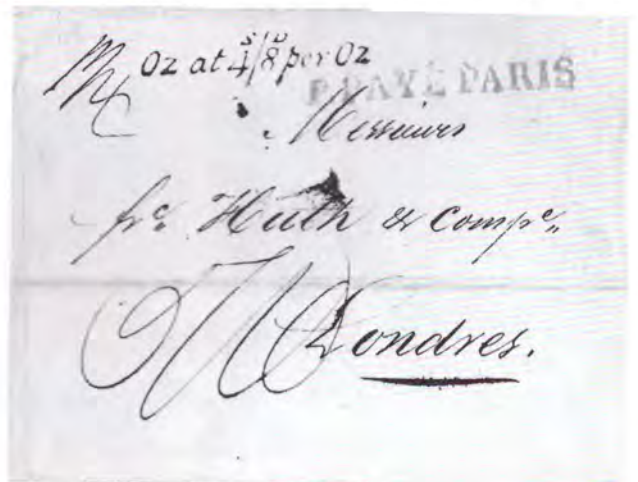 Oz at 4/8 per Oz
P.PAYÉ PARIS
Messieurs
frc. Huth & Compe.
Londres.